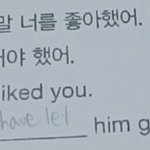 말 너를 좋아했어.
해야 했어.
iked you.
have let him g